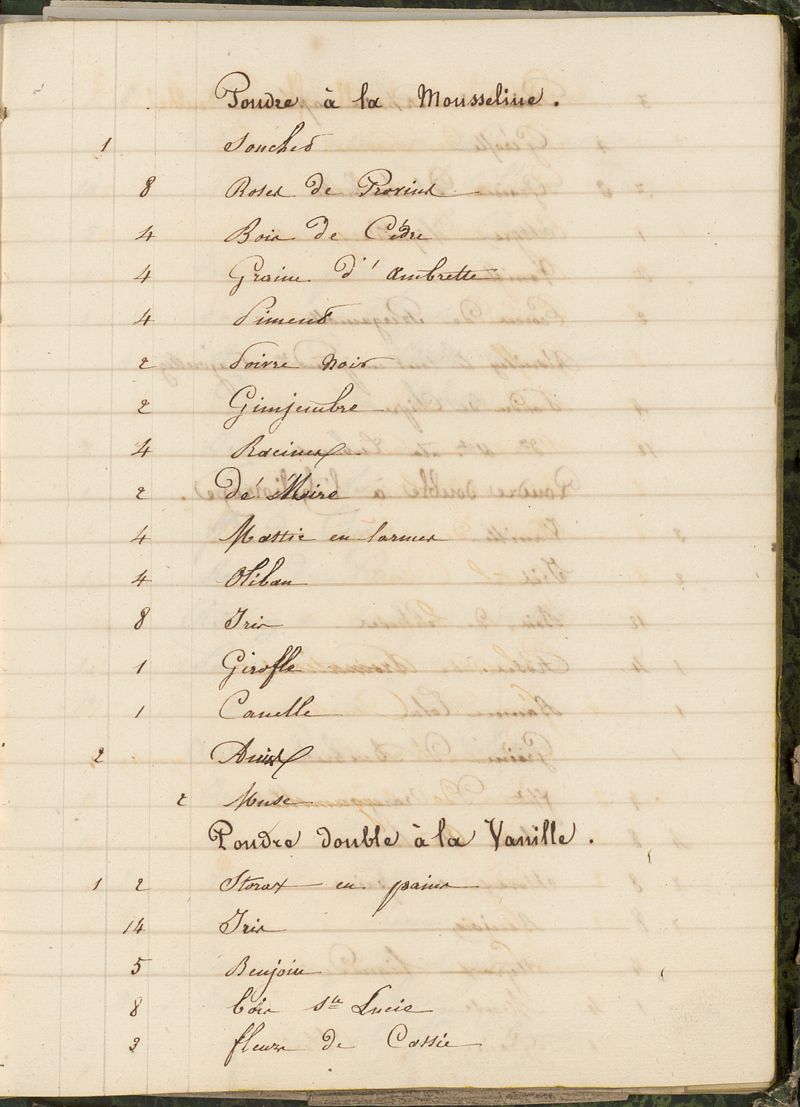 Poudre à la Mousseline.
1 Souchet
8 Roses de Provins
4 Bois de Cèdre
4 Graine d'Ambrette
4 Piment
2 Poivre noir
2 Gimjembre
4 Racines
2 de
4 Mastic en larmes
4 Oliban
8 Iris
1 Girofle
1 Canelle
2 Anis
2 Musc
Poudre double à la Vanille.
1 2 Storax en pains
14 Iris
5 Benjoin
8 bois Ste Lucie
3 fleurs de Cassie